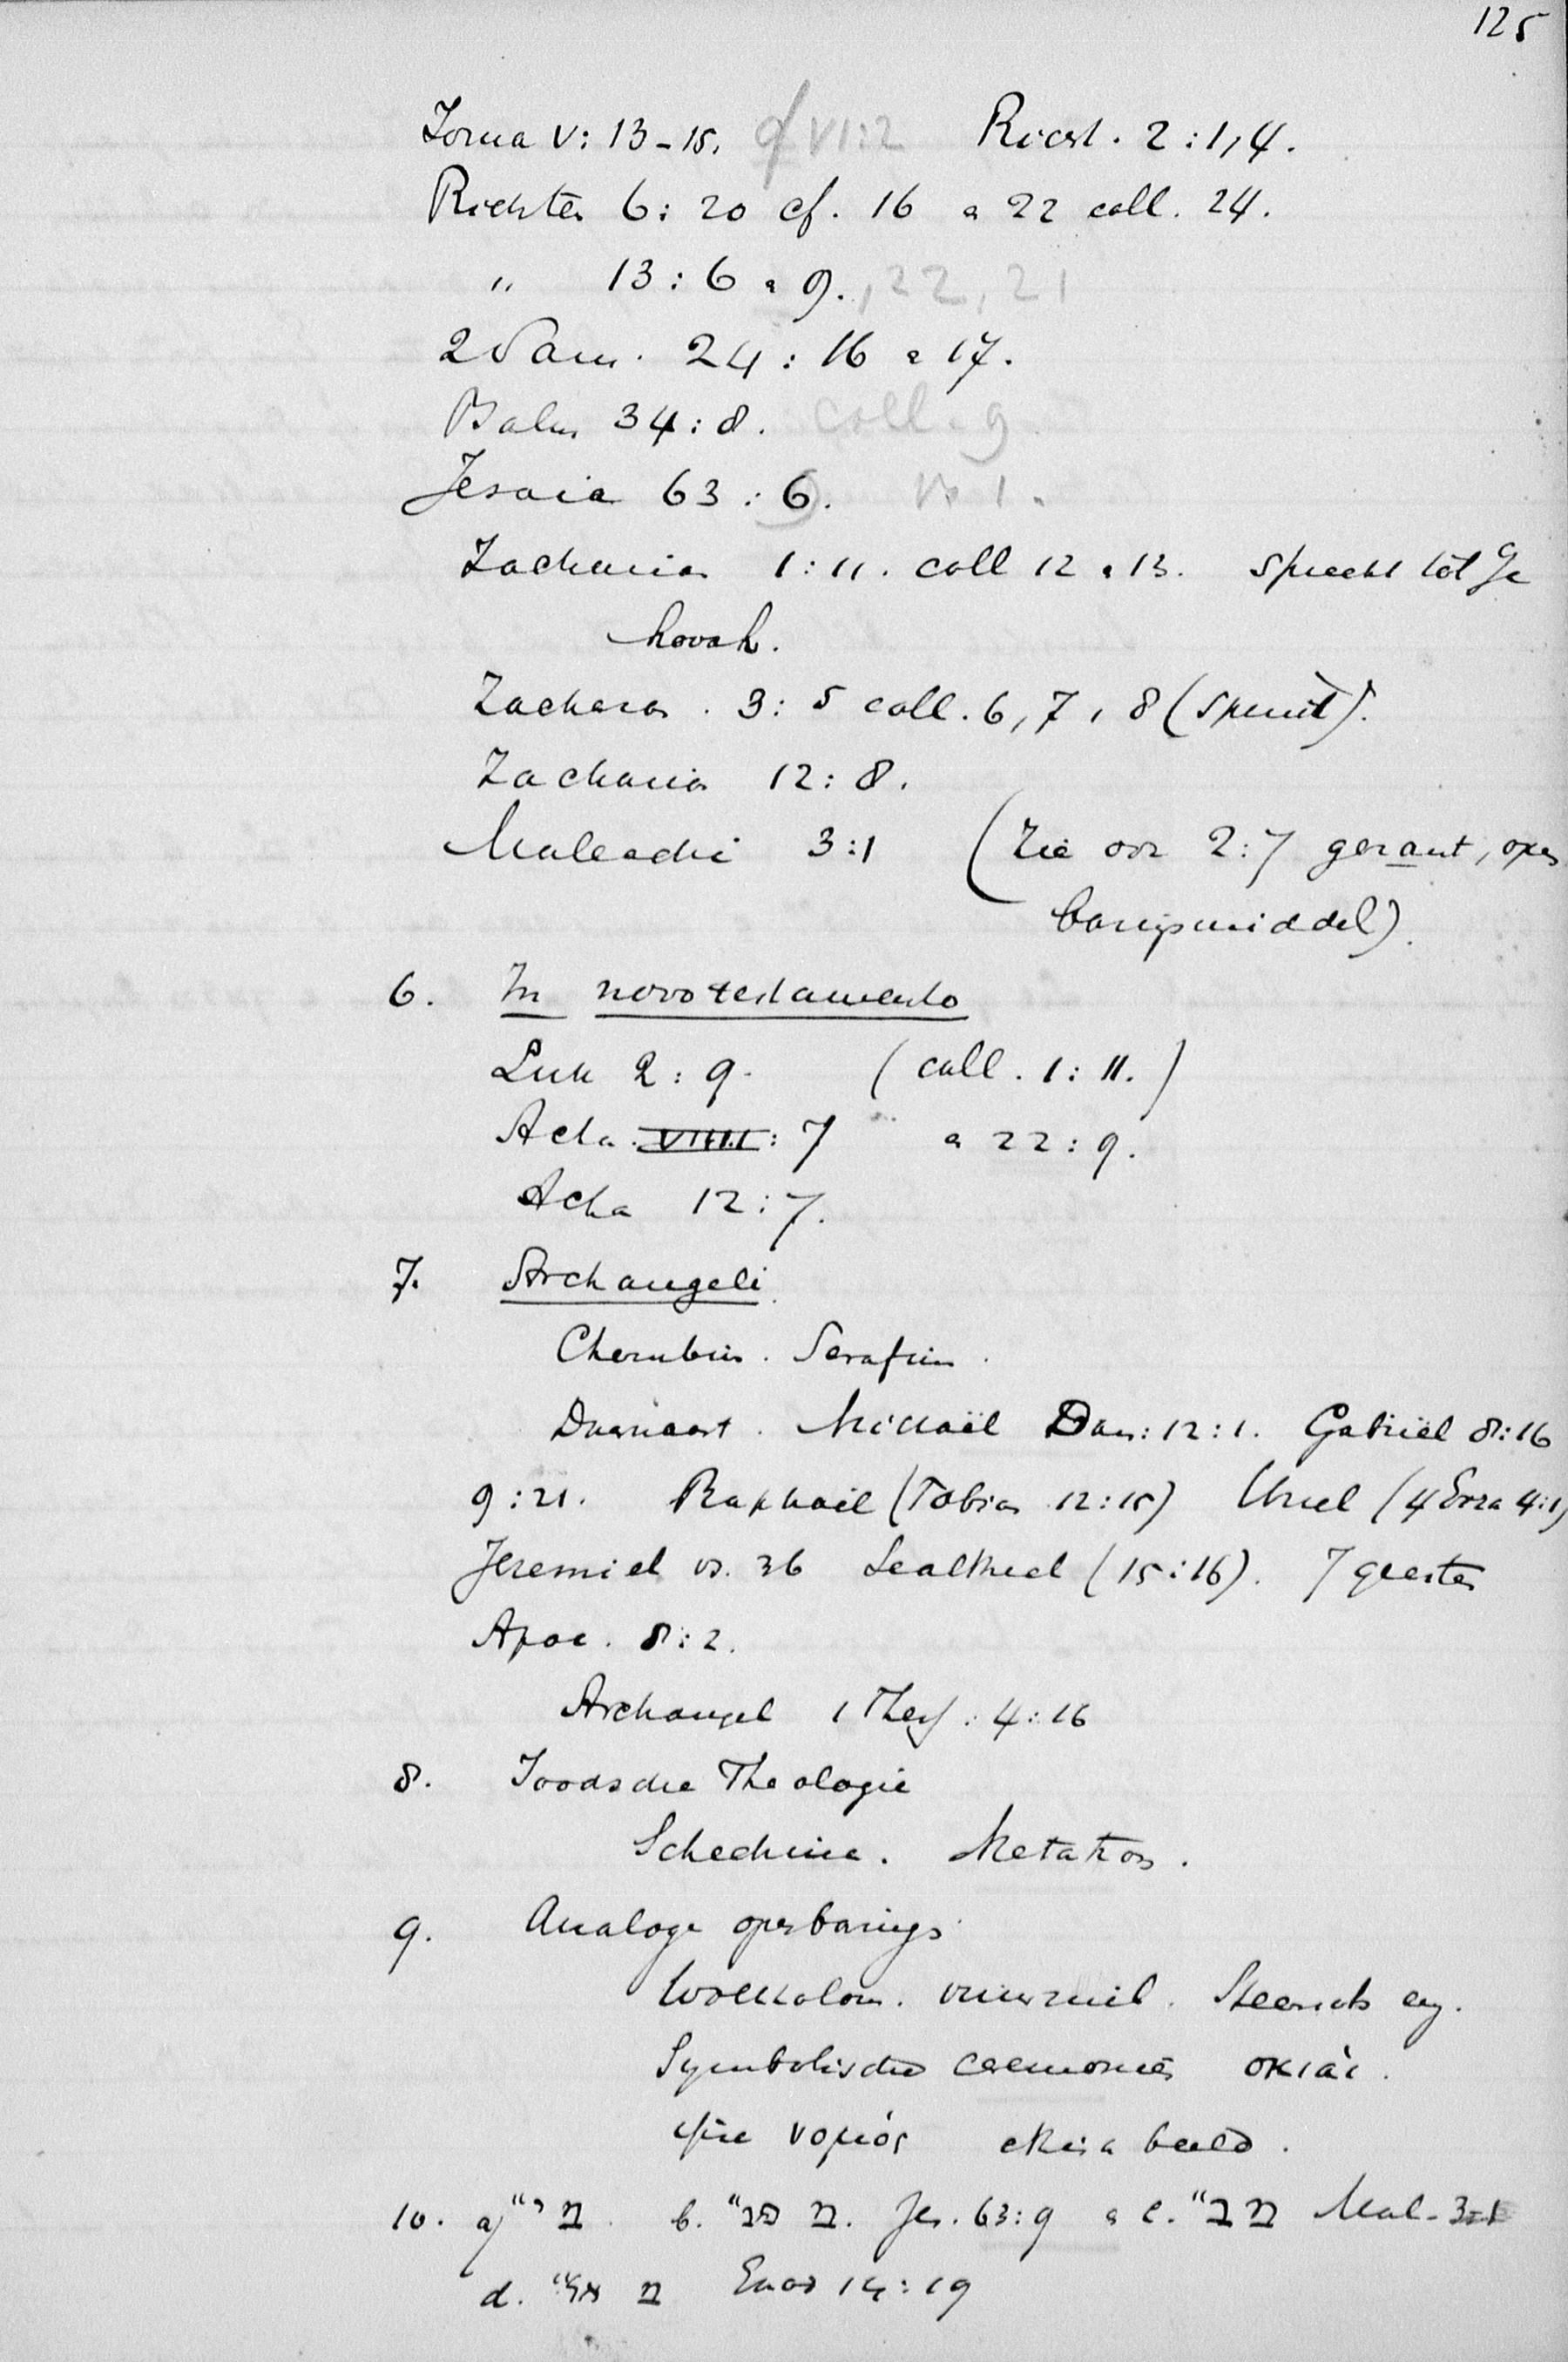 125
Josua V: 13-15. cf VI:2 Richt. 2:1,4.
Richter 6: 20 cf. 16 a 22 coll. 24.
" 13: 6 a 9., 22, 21
2 Sam. 24: 16 a 17.
Psalm 34:8. coll. 9
Jesaia 63: 6. vs 1.
Zacharias 1:11. coll 12 a 13. spreekt tot Je
hovah.
Zacharias. 3: 5 coll. 6, 7, 8
Zacharias 12: 8.
Maleachi 3:1 (Zie voor 2:7 gezant, open
baringsmiddel).
6. In novo testamento
Luk 2: 9. (coll. 1: 11.)
Acta : 7 a 22: 9.
Acta 12:7.
7. Archangeli
Cherubim. Serafim.
Daarnaast. Michaël Dan: 12:1. Gabriël 8:16
9:21. Raphaël (Tobias 12:15) Uriel (4 Ezra 4:1)
Jeremiel vs. 36 Sealthiel (15:16). 7 geesten
Apoc. 8:2.
Archangel 1 Thess: 4:16
8. Joodsche Theologie
Schechina. Metatron.
9. Analoge openbarings
Wolkkolom. vuurzuil.
Symbolische ceremoniën σκιαί.
beeld.
10. a) "י מ. b. "פנ מ. Jes. 63:9 a c. "ב מ Mal. 3:1
d. מ 14:19